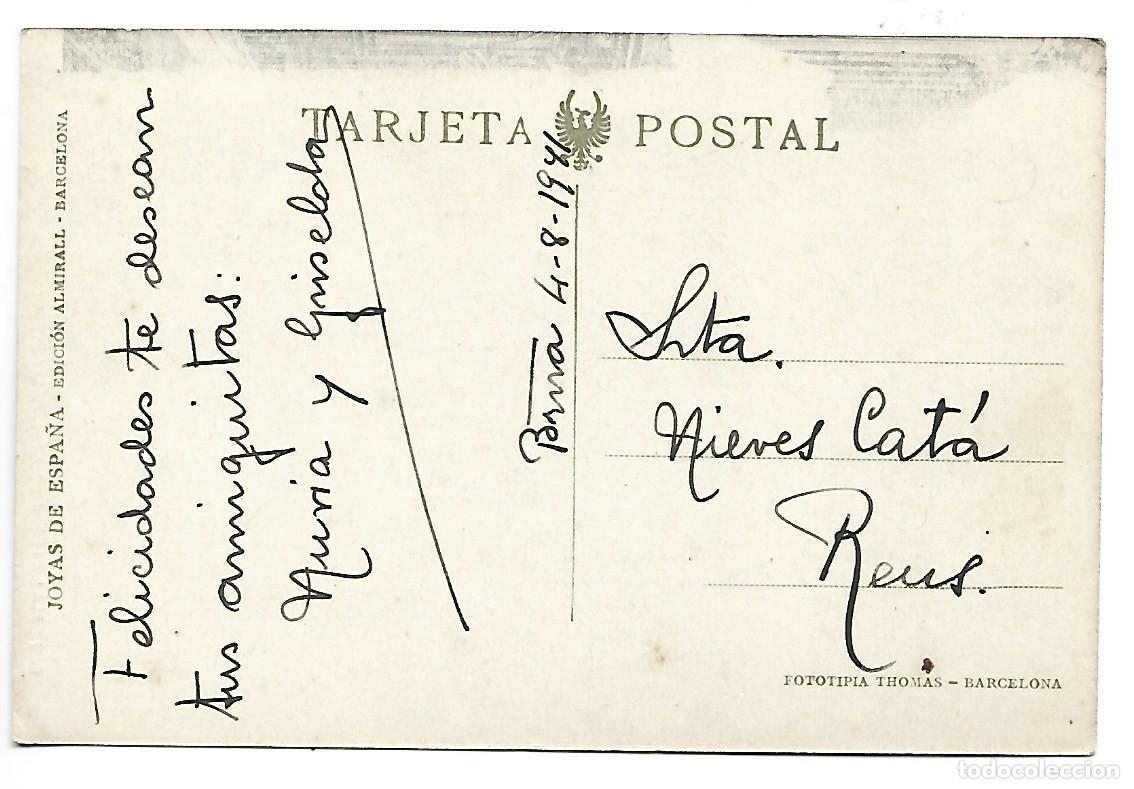 TARJETA POSTAL
JOYAS DE ESPAÑA - EDICIÓN ALMIRALL - BARCELONA
Felicidades te desean
tus amiguitas:
Nuria y Griselda
Bna 4-8-1941
Srta.
Nieves Catá
Reus.
FOTOTIPIA THOMAS - BARCELONA
todocoleccion